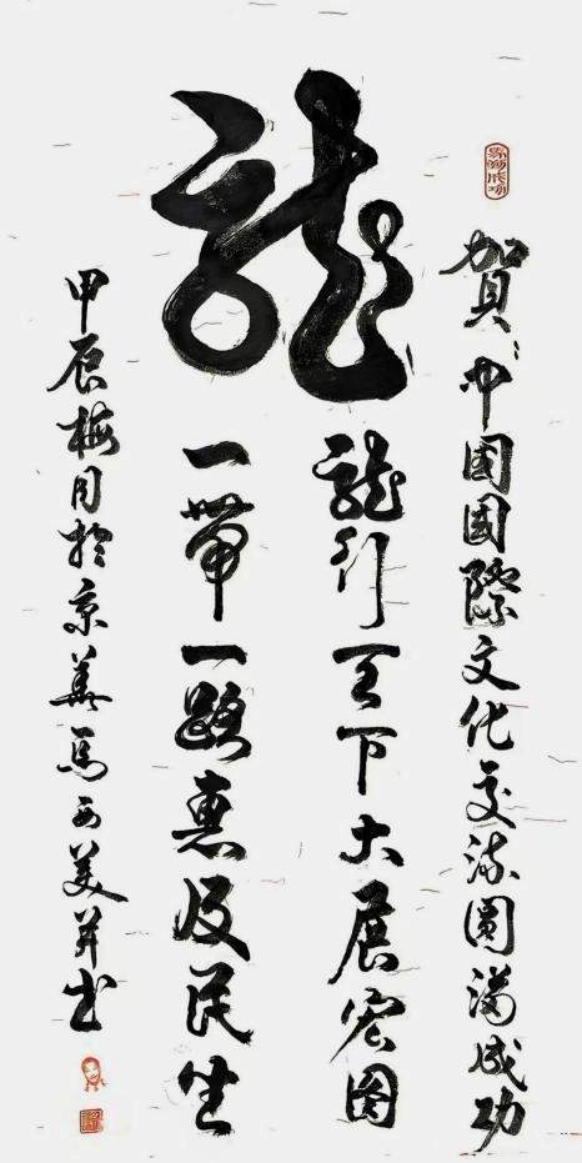 賀"中国國際文化交流圓满成功
龍
龍行天下大展宏图
一帶一路惠及民生
甲辰梅月於京華馬美并书